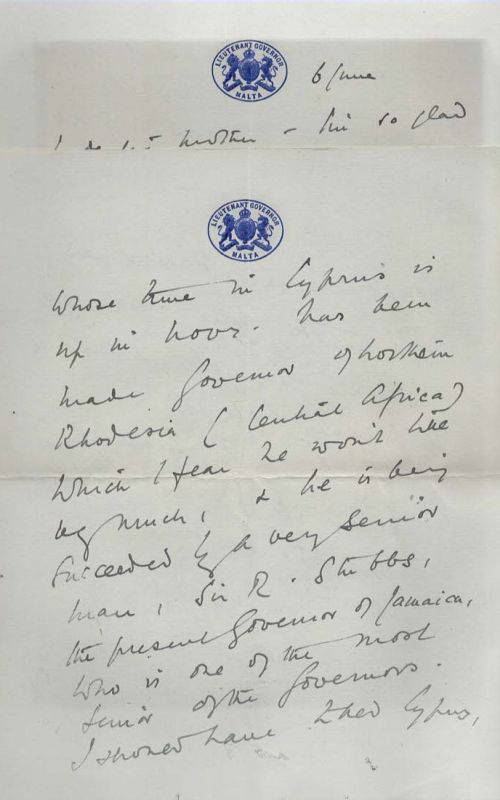 LIEUTENANT GOVERNOR
MALTA
6 June
mother - I'm so glad
LIEUTENANT GOVERNOR
MALTA
whose time in Cyprus is
up in Novr. has been
made Governor of Northern
Rhodesia (Central Africa)
which I fear he won't like
very much, & he is being
succeeded by a very senior
man, Sir R. Stubbs,
the present Governor of Jamaica,
who is one of the most
senior of the Governors.
I should have liked Cyprus,